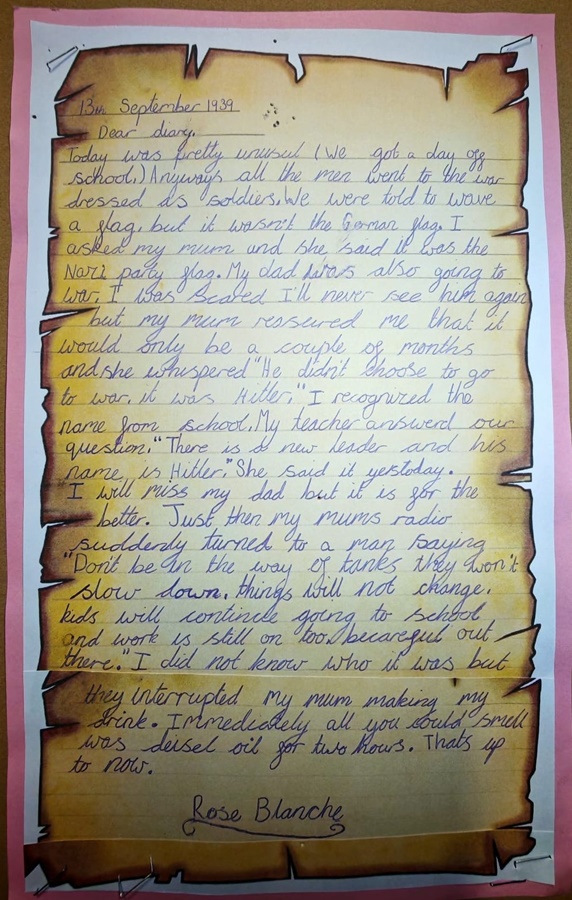 13th September 1939
Dear diary,
Today was pretty unusul (We got a day off
school.) Anyways all the men went to the war
dressed as soldiers. We were told to wave
a flag, but it wasn't the German flag. I
asked my mum and she said it was the
Nazi party flag. My dad was also going to
war. I was scared I'll never see him again
but my mum resseured me that it
would only be a couple of months
and she whispered "He didn't choose to go
to war, it was Hitler." I recognized the
name from school. My teacher answerd our
question. "There is a new leader and his
name is Hitler." She said it yestoday.
"I will miss my dad but it is for the
better. Just then my mums radio
suddenly turned to a man saying
"Don't be in the way of tanks they won't
slow down. things will not change.
kids will continue going to school
and work is still on too. becareful out
there." I did not know who it was but
they interrupted my mum making my
drink. Immediately all you could smell
was deisel oil for two hours. Thats up
to now.
Rose Blanche